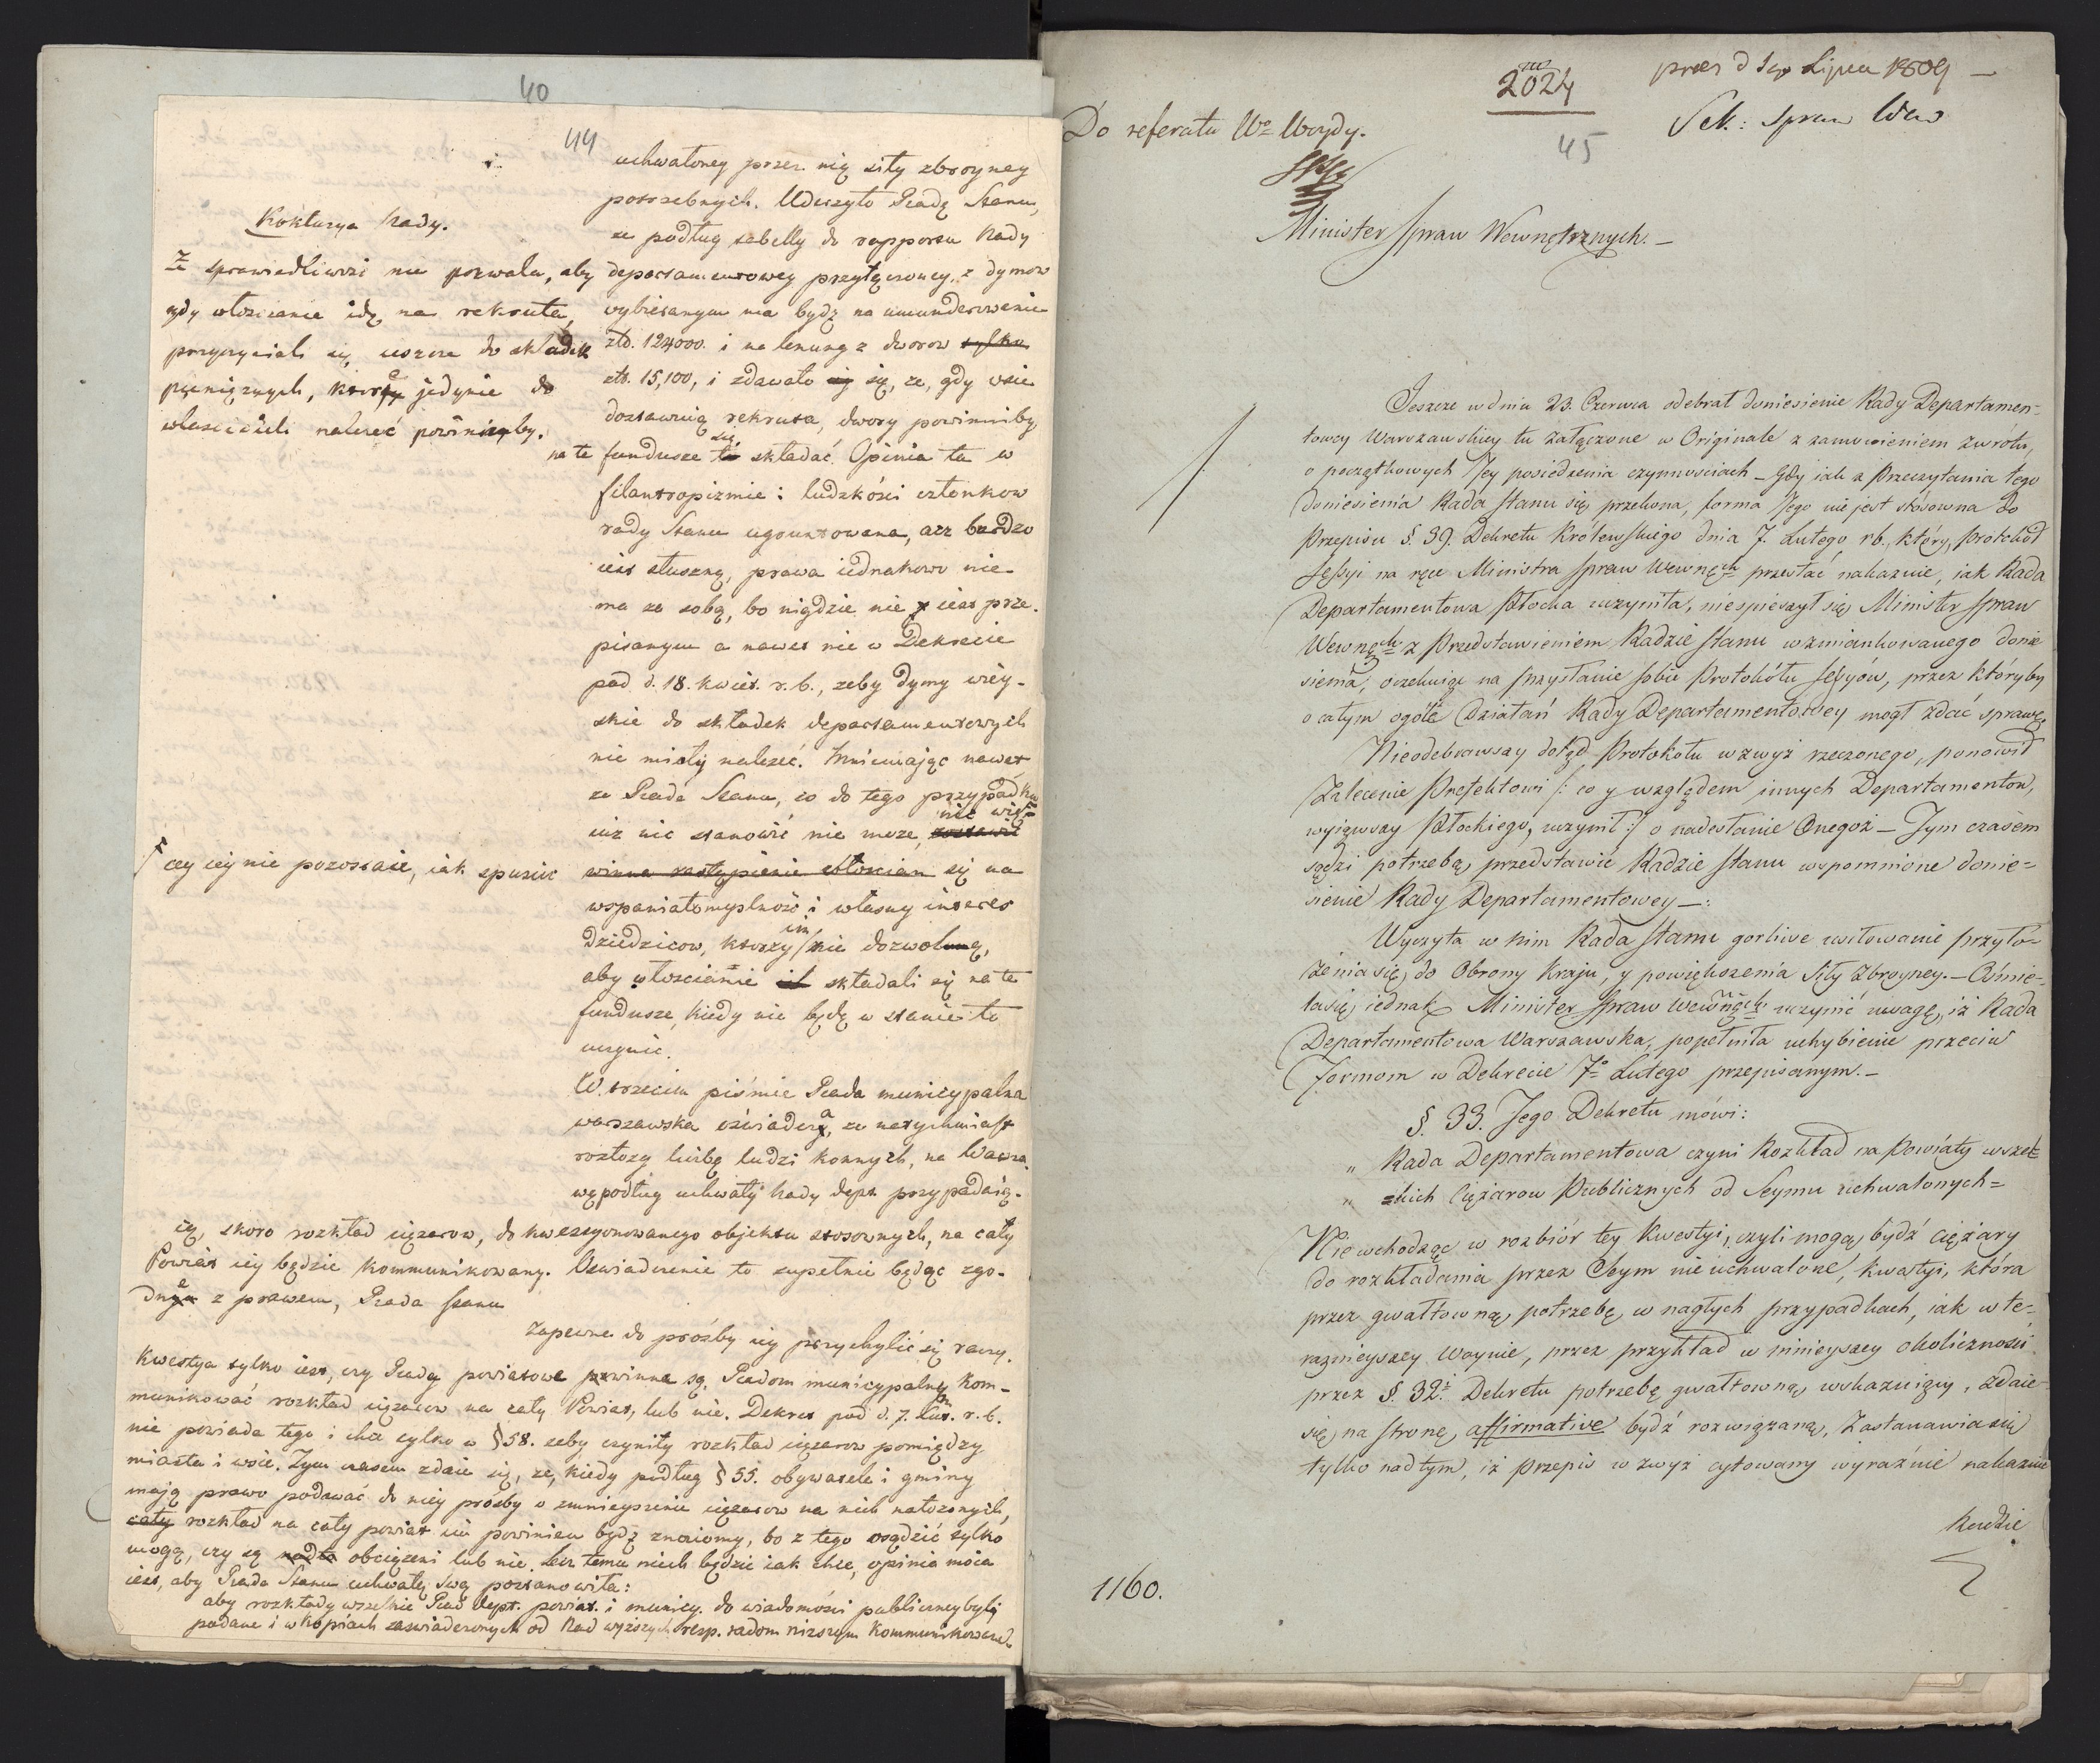 40
44
uchwaloney przez nię siły zbroyney
potrzebnych. Uderzyło Radę Stanu,
że podług tabelly do rapportu Rady
departamentowey przyłączoney, z dymow
wybieranym ma bydź na umunderowanie
złt. 124000. i na lenung z dworow tylko
złt. 15,100, i zdawało się, że, gdy wsie
dostawuią rekruta, dwory powinniby
na te fundusze się składać. Opinia ta w
filantropizmie i ludzkości członkow
rady Stanu ugruntowana, acz bardzo
iest słuszną, prawa iednakowo nie
ma za sobą, bo nigdzie nie iest prze-
pisanym a nawet nie w Dekrecie
pod d. 18. kwiet. r. b., żeby dymy wiey-
skie do składek departamentowych
nie miały należeć. Mniemając nawet
że Rada Stanu, co do tego przypadku
iuż nic stanowić nie może, nic wię-
cey iey nie pozostaie, iak spuścić
się na
wspaniałomyślność i własny interes
dziedzicow, ktorzy im nie dozwolą,
aby włościanie składali się na te
fundusze, kiedy nie będą w stanie to
uczynić.
W trzecim piśmie Rada municypalna
warszawska oświadcza, że natychmiast
rozłoży liczbę ludzi konnych, na Warsza-
wę podług uchwały Rady dept. przypadaią-
cą, skoro rozkład ciężarow, do kwestyonowanego objektu stosownych, na cały
Powiat iey będzie kommunikowany. Oświadczenie to zupełnie będąc zgo-
dne z prawem, Rada Stanu
zapewne do prośby iey przychylić się raczy.
Kwestya tylko iest, czy Rady powiatowe powinne są Radom municypalnym kom-
munikować rozkład ciężarow na cały Powiat, lub nie. Dekret pod d. 7. Lut. r. b.
nie powiada tego i chce tylko w § 58. żeby czyniły rozkład ciężarow pomiędzy
miasta i wsie. Tym czasem zdaie się, że, kiedy podług § 55. obywatele i gminy
mają prawo podawać do niey prośby o zmnieyszenie ciężarow na nich nałożonych,
cały rozkład na cały powiat im powinien bydź znaiomy, bo z tego osądzić tylko
mogą, czy są nadto obciążeni lub nie. Lecz temu niech będzie iak chce, opinia moia
iest, aby Rada Stanu uchwałą swą postanowiła:
aby rozkłady wszelkie Rad dept. powiat. i municy. do wiadomości publiczney były
podane i w kopiach zaświadczonych od Rad wyższych resp. radom niższym kommunikowane
Konkluzya Rady.
Że sprawiedliwość nie pozwala, aby
gdy włościanie idą na rekruta,
przyczyniali się ieszcze do składek
pieniężnych, które jedynie do
właścicieli należeć powinnyby.
2024
45
Do referatu Wo Woydy.
Sek: Spraw Wew
Minister Spraw Wewnętrznych. —
Jeszcze w dniu 23. Czerwca odebrał doniesienie Rady Departamen-
towey Warszawskiey tu załączone w Originale z zamówieniem zwrotu,
o początkowych Jey posiedzenia czynnościach — Gdy iak z Przeczytania tego
doniesienia Rada Stanu się przekona, forma Jego nie jest stósowna do
Przepisu §. 39. Dekretu Królewskiego dnia 7. Lutego rb. który, Protokół
Sessyi na ręce Ministra Spraw Wewnęch przesłać nakazuie, iak Rada
Departamentowa Płocka uczyniła, niespieszył się Minister Spraw
Wewnęch z Przedstawieniem Radzie Stanu wzmiankowanego donie
sienia, oczekuiąc na Przysłanie sobie Protokółu Sessyów, przez któryby
o całym ogóle Działań Rady Departamentowey mogł zdać sprawę.
Nieodebrawszy dotąd Protokołu wzwyż rzeczonego, ponowił
Zalecenie Prefektowi /: co y względem innych Departamentow,
wyiąwszy Płockiego, uczynił :/ o nadesłanie Onegoż — Tym czasem
sądzi potrzebą, przedstawić Radzie Stanu wspomnione donie=
sienie Rady Departamentowey —:
Wyczyta w nim Rada Stanu gorliwe usiłowanie przyło=
żenia się do Obrony Kraju, y powiększenia Siły Zbroyney. — Ośmie-
la się, iednak Minister Spraw Wewnęch uczynić uwagę, iż Rada
Departamentowa Warszawska, popełniła uchybienie przeciw
formom w Dekrecie 7o Lutego przepisanym. —
§. 33. Jego Dekretu mówi:
„ Rada Departamentowa czyni Rozkład na Powiaty wszel=
„ =kich Ciężarow Publicznych od Seymu uchwalonych=
Nie wchodząc w rozbiór tey Kwestyi, czyli mogą bydź ciężary
do rozkładania przez Seym nie uchwalone, kwestyi, która
przez gwałtowną potrzebę w nagłych przypadkach, iak w te-
raznieyszey Woynie, przez przykład w ninieyszey okoliczności
przez §. 32. Dekretu potrzebę gwałtowną wskazuiący, zdaie
się na stronę affirmative bydź rozwiązaną, Zastanawia się
tylko nad tym, iż Przepis wzwyż cytowany wyraźnie nakazuie
Radzie
1160.